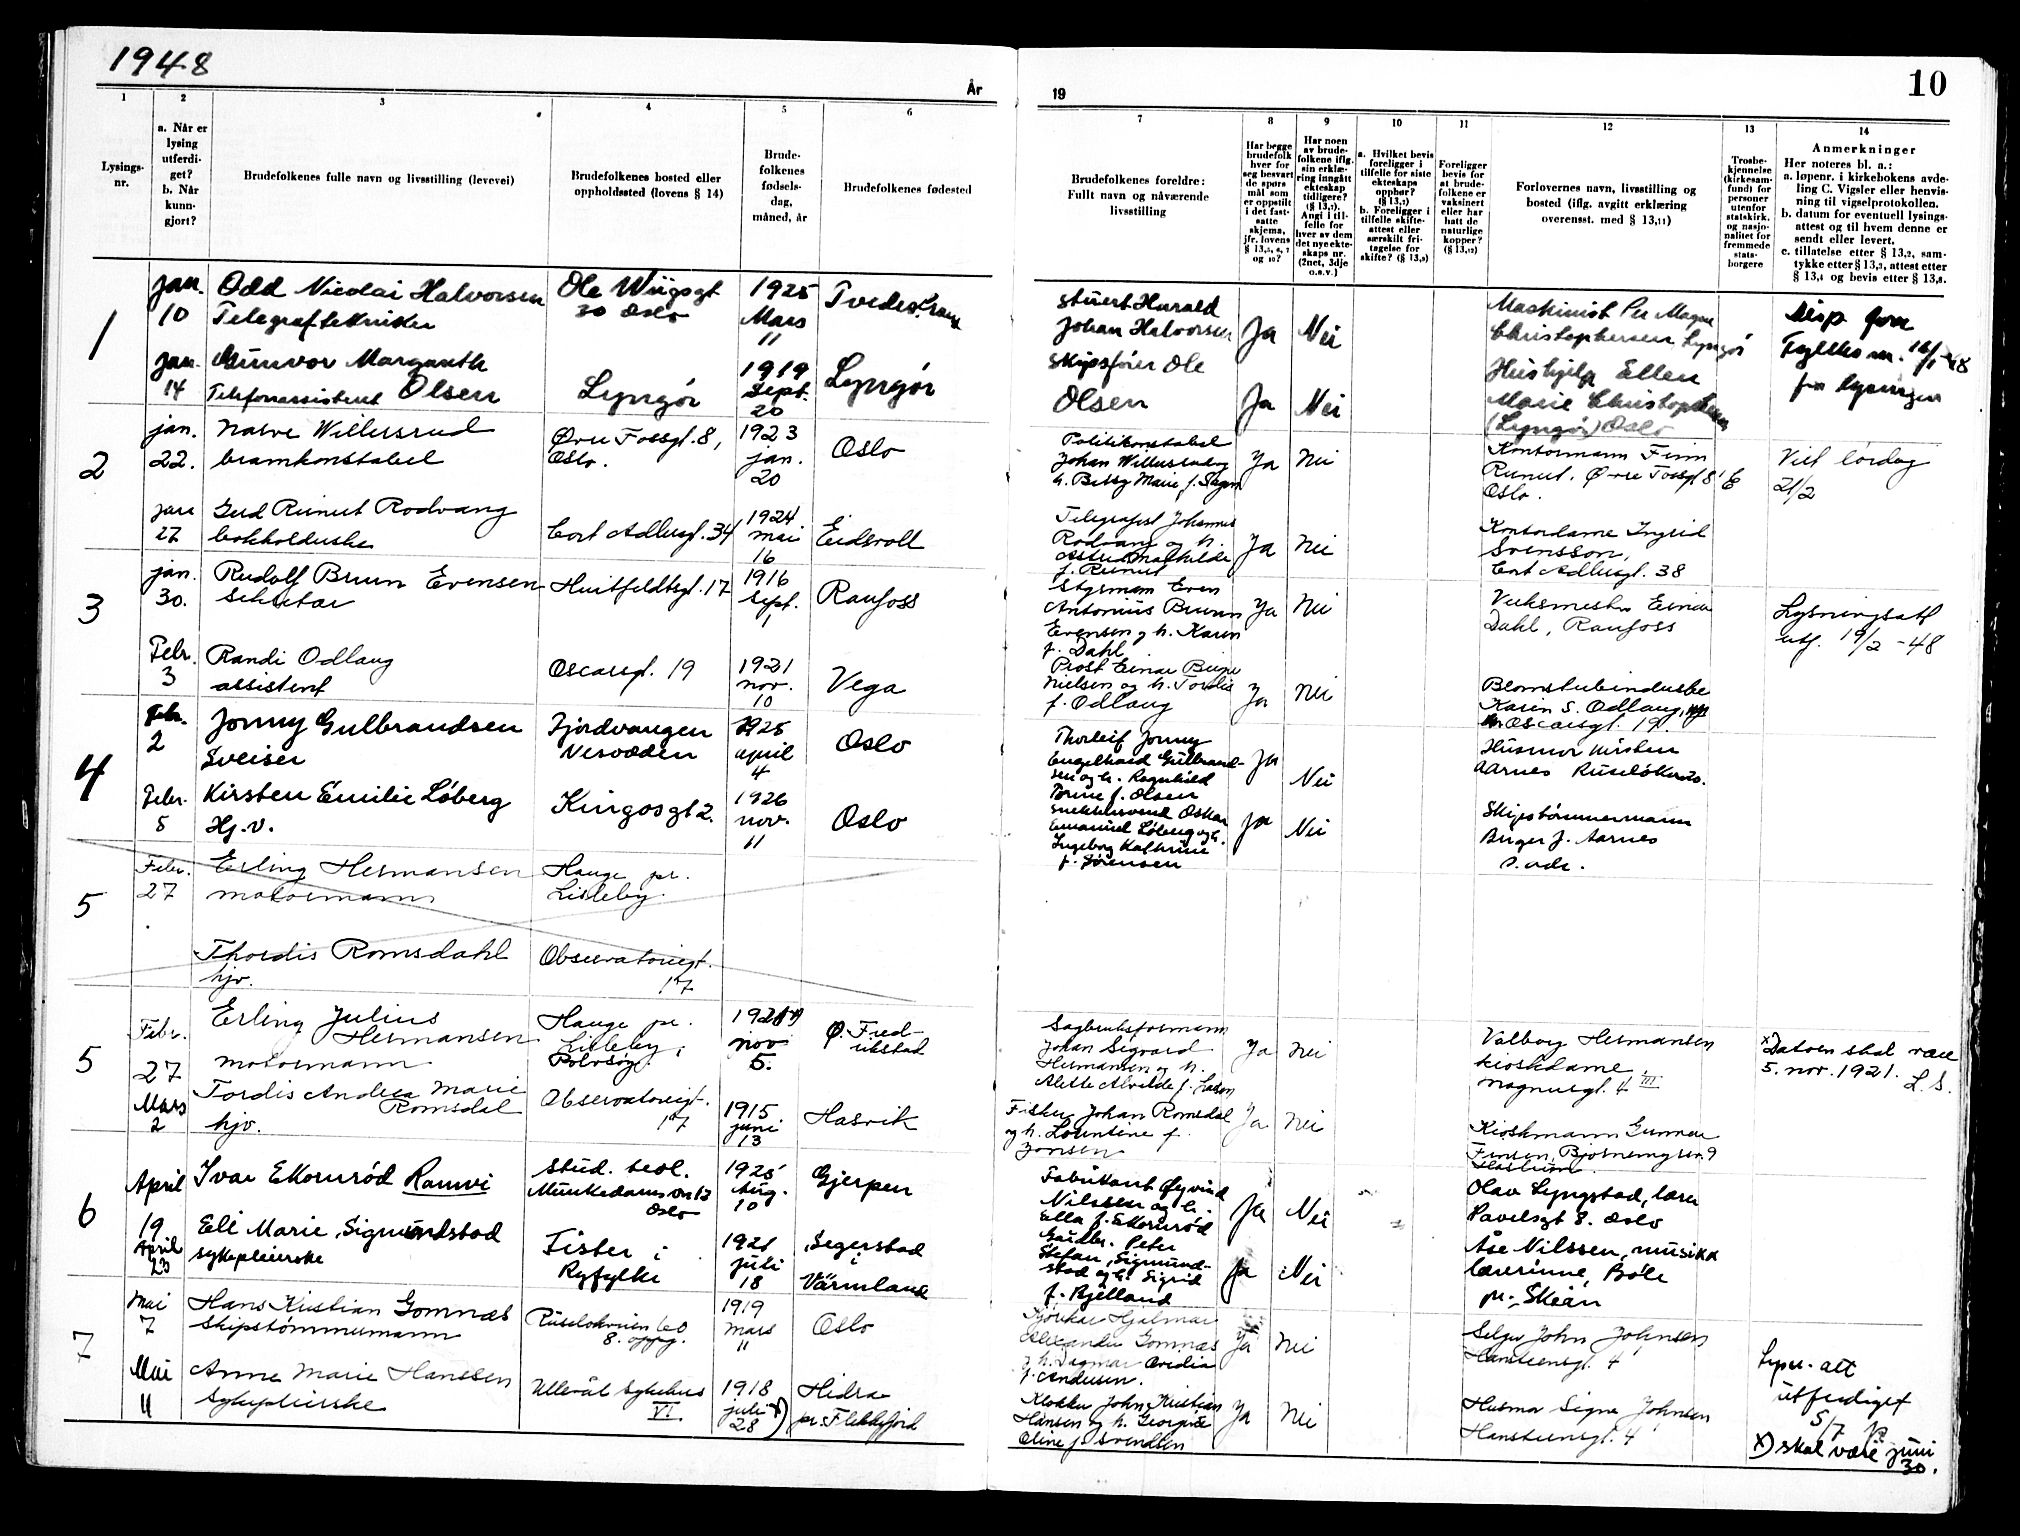 1948
År
19
10
1
2
3
4
5
6
7
8
9
10
11
12
13
14
Lysings-
nr.
a. Når er
lysing
utferdi-
get?
b. Når
kunn-
gjort?
Brudefolkenes fulle navn og livsstilling (levevei)
Brudefolkenes bosted eller
oppholdssted (lovens § 14)
Brude-
folkenes
fødsels-
dag,
måned, år
Brudefolkenes fødested
Brudefolkenes foreldre:
Fullt navn og nåværende
livsstilling
Har begge
brudefolk
hver for
seg besvart
de spørs-
mål som
er oppstilt
i det fast-
satte
skjema,
jfr. lovens
§ 13,5, 6, 7
og 10?
Har noen
av brude-
folkene iflg.
sin erklæ-
ring inngått
ekteskap
tidligere?
(§ 13,7).
Angi i til-
felle for
hver av dem
det nye ekte-
skaps nr.
(2net, 3dje
o.s.v.)
a. Hvilket bevis
foreligger i
tilfelle for siste
ekteskaps
opphør?
(§ 13,7)
b. Foreligger i
tilfelle skifte-
attest eller
særskilt fri-
tagelse for
skifte? (§ 13,9)
Foreligger
bevis for
at brude-
folkene er
vaksinert
eller har
hatt de
naturlige
kopper?
(§ 13,12)
Forlovernes navn, livsstilling og
bosted (iflg. avgitt erklæring
overensst. med § 13,11)
Trosbe-
kjennelse
(kirkesam-
fund) for
personer
utenfor
statskirk.
og nasjo-
nalitet for
fremmede
stats-
borgere
Anmerkninger
Her noteres bl. a.:
a. løpenr. i kirkebokens avde-
ling C. Vigsler eller henvis-
ning til vigselprotokollen.
b. datum for eventuell lysings-
attest og til hvem denne er
sendt eller levert.
c. tillatelse etter § 13,2, sam-
tykke etter § 13,3, attest etter
§ 13,4 og bevis etter § 13,8.
1
Jan.
10
Odd Nicolai Halvorsen
Telegraftekniker
Ole Wiigsgt
30 Oslo
1925
Mars
11
Tvedestrand
Stuert Harald
Johan Halvorsen
Ja
Nei
Maskinist Per Magne
Christophersen, Lyngør
Disp fra
Fylkesm. 16/1-48
fra lysingen
Jan.
14
Gunvor Margareth
Telefonassistent Olsen
Lyngør
1919
Sept.
20
Lyngør
Skipsfører Ole
Olsen
Ja
Nei
Hushjelp Ellen
Marie Christophersen
(Lyngør) Oslo
2
jan.
22.
Willersrud
brannkonstabel
Øvre Fossgt. 8,
Oslo.
1923
jan.
20
Oslo
Politikonstabel
Johan Willersrud og
h. Betsy Marie f.
Ja
Nei
Kontormann Finn
Øvre Fossgt 8 E
Oslo.
Viet lørdag
21/2
jan
27
Gerd Rodvang
bokholderske
Cort Adlersgt. 34
1924
mai
16
Eidsvoll
Telegrafist Johannes
Rodvang og h.
Astrid Mathilde
Ja
Nei
Kontordame Ingrid
Svensson,
Cort Adlersgt. 38
3
jan.
30.
Rudolf Bruun Evensen
Sekretær
Huitfeldtsgt. 17
1916
Sept.
1
Raufoss
Styrmann Even
Antonius Bruun
Evensen og h. Karen
f. Dahl
Ja
Nei
Verksmester Einar
Dahl, Raufoss
Lysningsatt
utf. 19/2 - 48
Febr.
3
Randi Odlaug
assistent
Oscarsgt. 19
1921
nov.
10
Vega
Prost Einar
Nielsen og h. Tordis
f. Odlaug
Ja
Nei
Blomsterbinderske
Karin S. Odlaug,
Oscarsgt. 19.
4
Febr.
2
Jonny Gulbrandsen
Sveiser
Fjordvangen
Nesodden
1925
april
4
Oslo
Thorleif Jonny
Engelhard Gulbrand-
sen og h. Ragnhild
f. Olsen
Ja
Nei
Husmor Kirsten
Aarnes
Febr.
5
Kirsten Emilie Løberg
Hj. v.
Kingosgt 2.
1926
nov.
11
Oslo
Snekkersvend Oskar
Emanuel Løberg og h.
Ingeborg Kathrine
f. Sørensen
Ja
Nei
Skipstømmermann
Birger J. Aarnes
s. adr.
5
Febr.
27
Erling Hermansen
motormann
Hauge pr.
Lisleby.
Thordis Romsdahl
hjv.
Observatoriegt.
17
5
Febr.
27
Erling Julius
Hermansen
motormann
Hauge pr.
Lisleby,
Rolvsøy.
1921 x)
nov
5.
Ø. Fred-
rikstad
Sagbruksformann
Johan Sigvard
Hermansen og h.
Alette Alvilde f. Larsen
Ja
Nei
Valborg Hermansen
kioskdame
Magnusgt. 4 III
x) Datoen skal være
5. nov. 1921. L. S.
Mars
2
Tordis Andrea Marie
Romsdal
hjv.
Observatoriegt.
17
1915
juni
13
Hasvik
Fisker Johan Romsdal
og h. Lorentine f.
Jonsen
Ja
Nei
Kioskmann Gunnar
Finsen, Bjørnemyrvn. 9
Haslum.
6
April
19
Ivar Ekornrød Ramvi
Stud. teol.
Munkedamsvn 12
Oslo
1925
Aug.
10
Gjerpen
Fabrikant Øyvind
Nilssen og h.
Ella f. Ekornrød
Ja
Nei
Olav Lyngstad, lærer
Pavelsgt 8. Oslo
April
23
Eli Marie Sigmundstad
sykepleierske
Fister i
Ryfylke
1921
juli
18
Segerstad
i
Värmland
Gårdbr. Peter
Stefan Sigmund-
stad og h. Sigrid
f. Bjelland
Ja
Nei
Åse Nilssen, musikk
lærerinne, Bøle
pr. Skien
7
Mai
7
Hans Kristian Gomnæs
Skipstømmermann
Ruseløkveien 60
8. oppg.
1919
mars
11
Oslo
Hjalmar
Alexander Gomnæs
og h. Dagmar Ovidia
f. Andersen.
Ja
Nei
Selger John Johnsen
Hansteensgt. 4
Lysn. att
utferdiget
5/7
Mai
11
Anne Marie Hanssen
Sykepleierske
Ullevål Sykehus
VI.
1918
juli x)
28
Hidra
pr. Flekkefjord
Klokker John Kristian
Hansen og h. Georgine
Oline f. Svendsen
Ja
Nei
Husmor Signe Johnsen
Hansteensgt. 4
x) skal være juni
30.